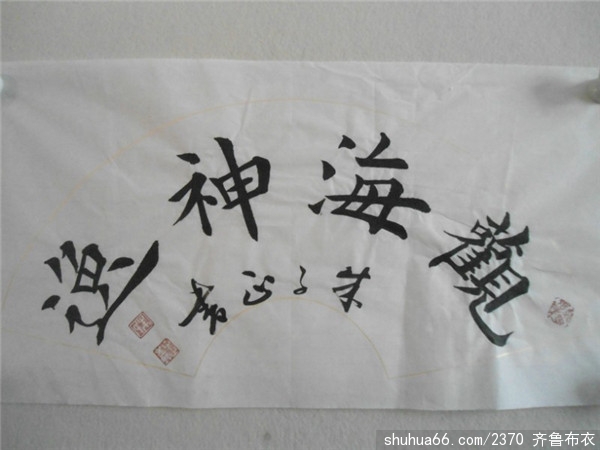 觀海神逸
朱子書
shuhua66.com/2370 齐鲁布衣